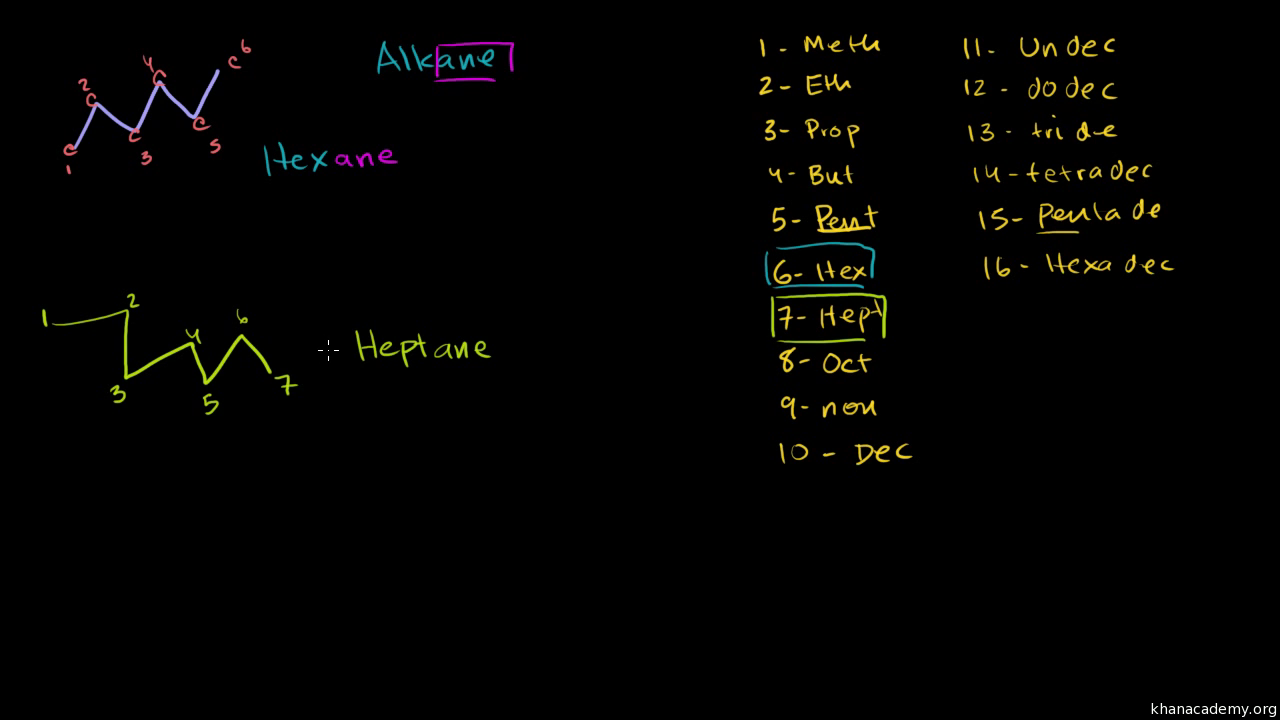 Alkane
C 1
C 2
C 3
C 4
C 5
C 6
Hexane
1 2 3 4 5 6 7
Heptane
1 - Meth
2 - Eth
3 - Prop
4 - But
5 - Pent
6 - Hex
7 - Hept
8 - Oct
9 - non
10 - Dec
11 - Undec
12 - dodec
13 - tride
14 - tetradec
15 - Pentade
16 - Hexadec
khanacademy.org